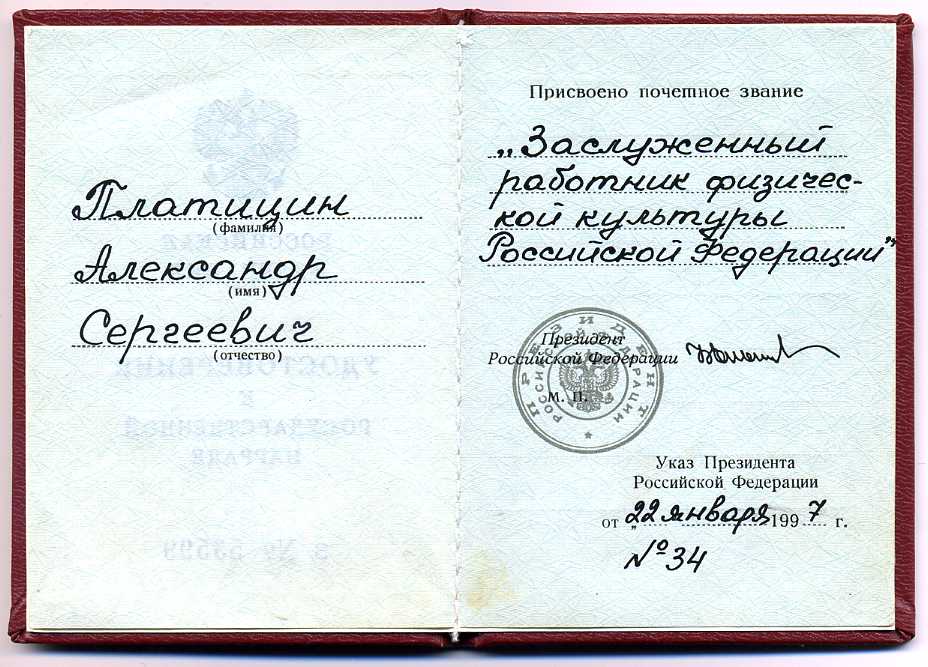 Платицин
(фамилия)
Александр
(имя)
Сергеевич
(отчество)
Присвоено почетное звание
„Заслуженный
работник физичес-
кой культуры
Российской Федерации”
Президент
Российской Федерации
М. П.
ПРЕЗИДЕНТ
РОССИЙСКОЙ ФЕДЕРАЦИИ
Указ Президента
Российской Федерации
от „22 января 1997 г.
№ 34